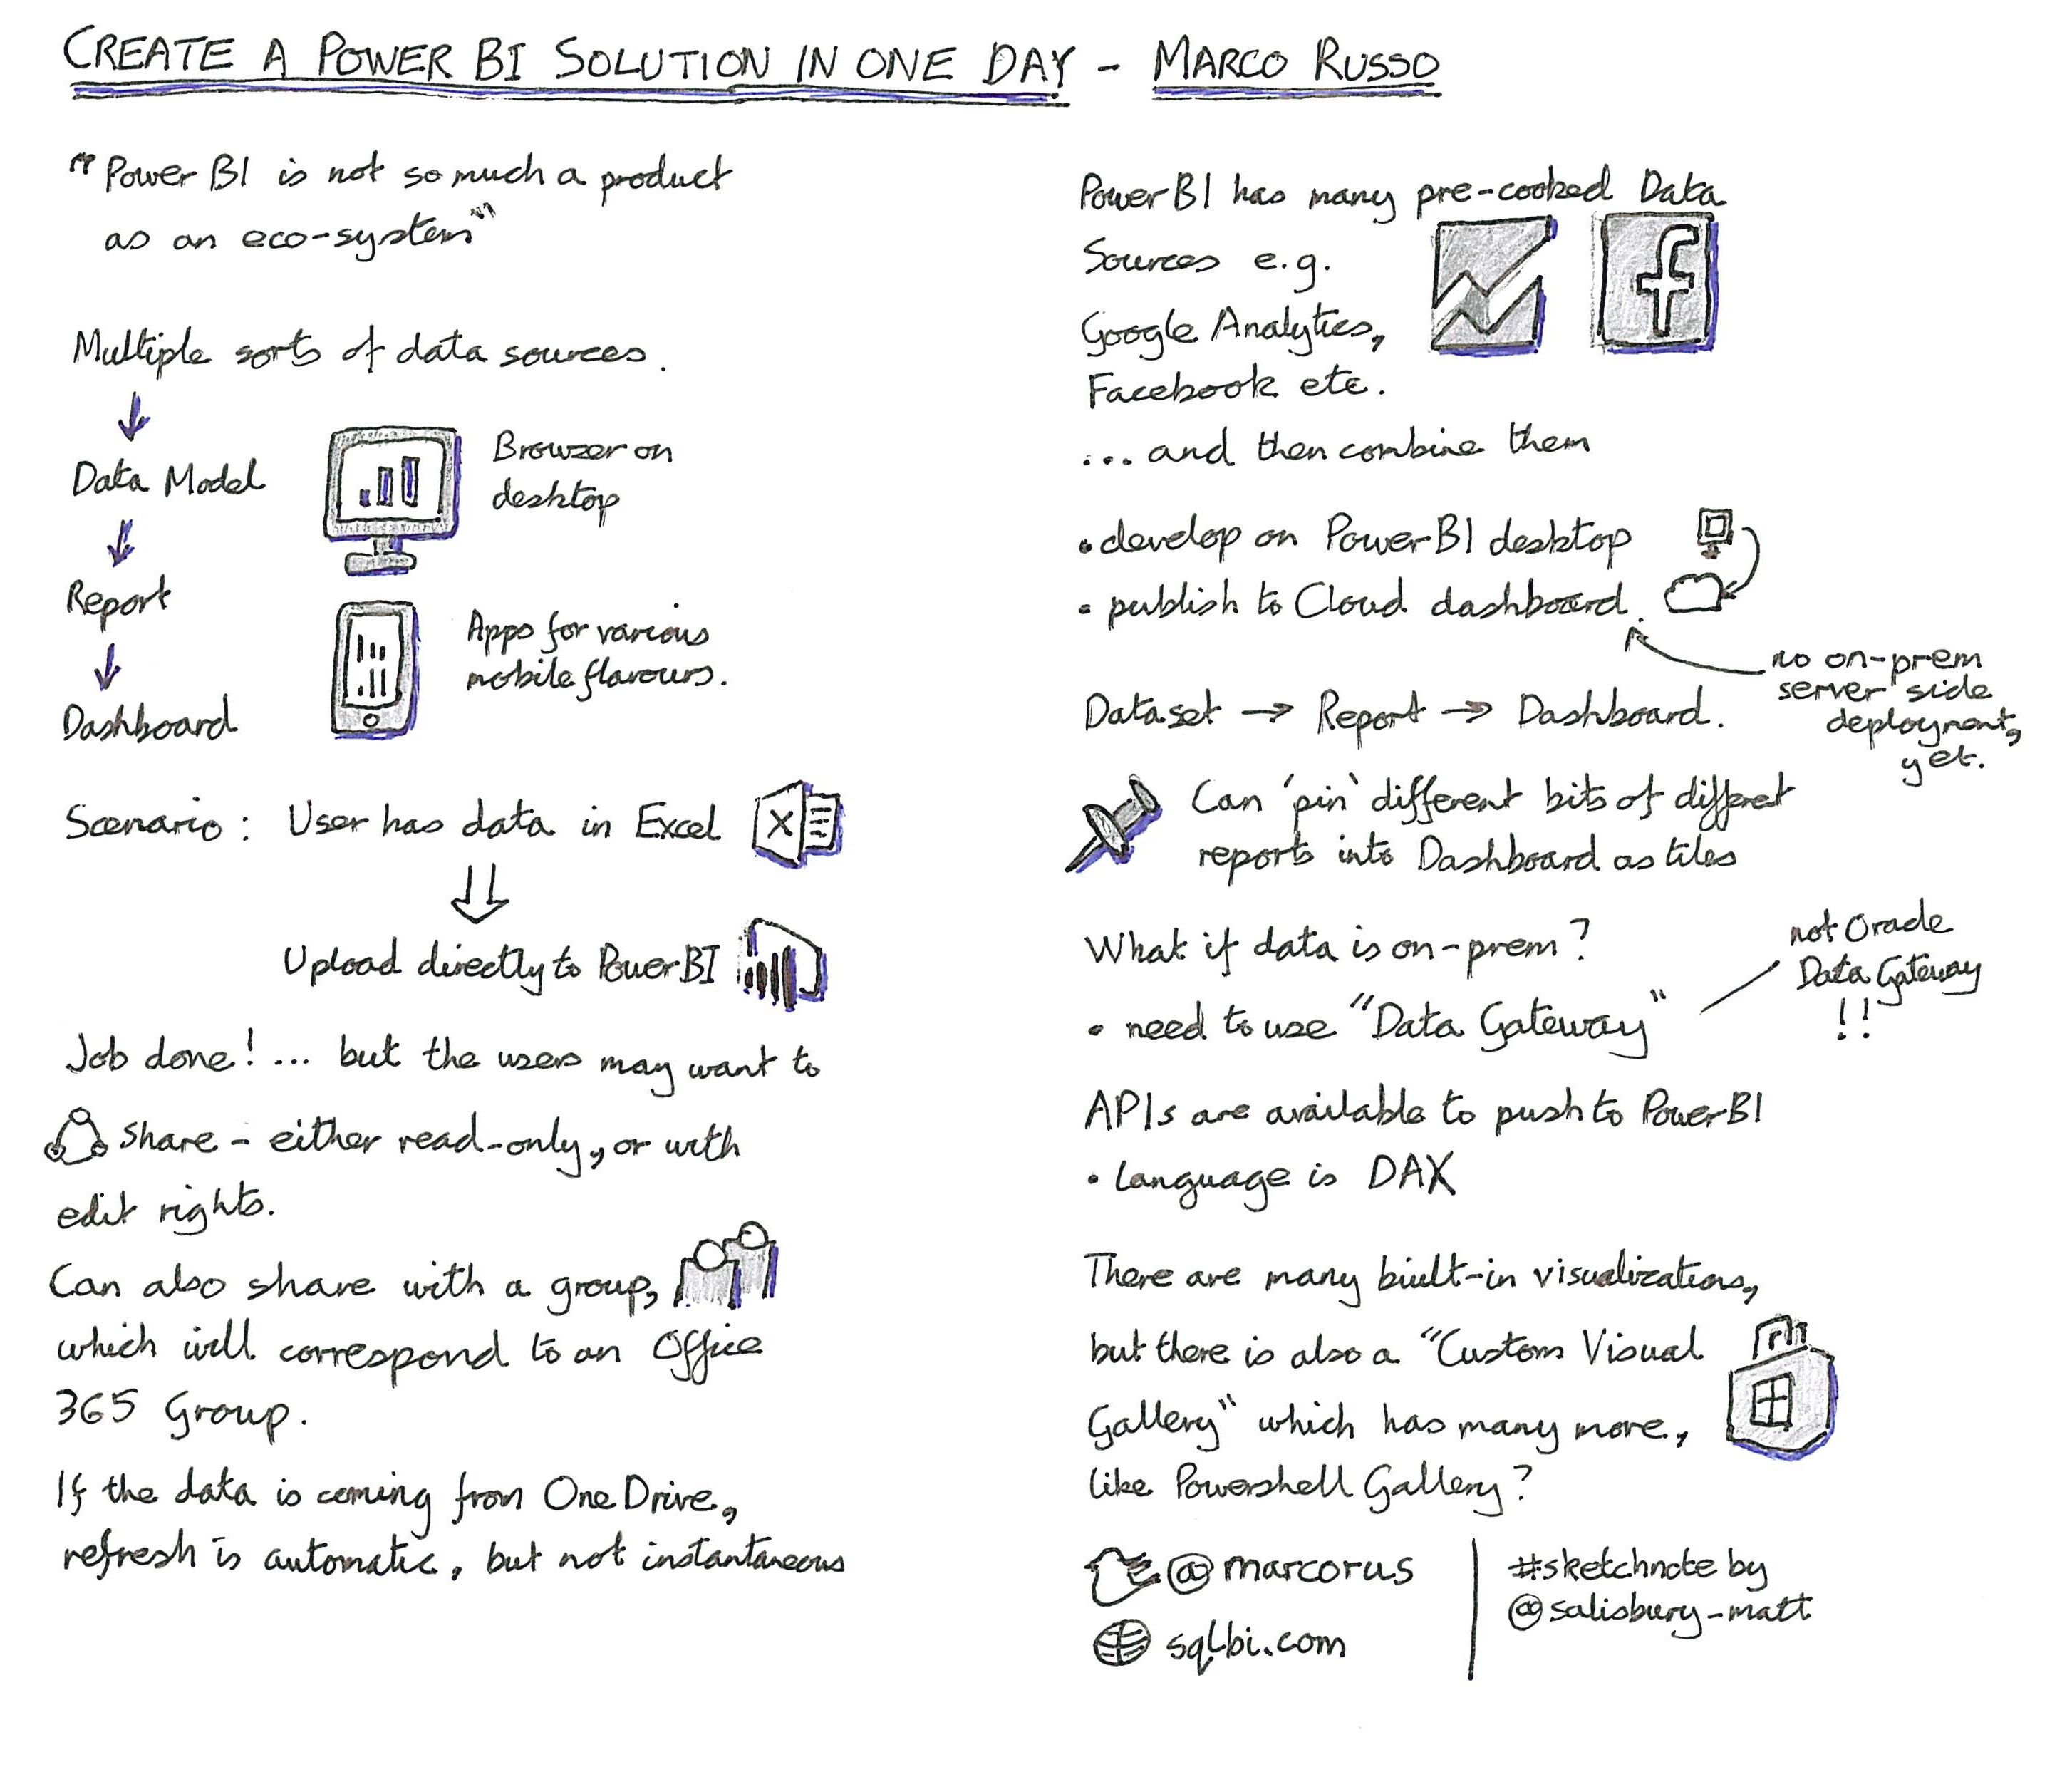 CREATE A POWER BI SOLUTION IN ONE DAY - MARCO RUSSO
"Power BI is not so much a product
as an eco-system"
Multiple sorts of data sources.
Data Model
Report
Dashboard
Browser on
desktop
Apps for various
mobile flavours.
Scenario: User has data in Excel
X
Upload directly to PowerBI
Job done! ... but the users may want to
share - either read-only, or with
edit rights.
Can also share with a group,
which will correspond to an Office
365 Group.
If the data is coming from OneDrive,
refresh is automatic, but not instantaneous
PowerBI has many pre-cooked Data
Sources e.g.
f
Google Analytics,
Facebook etc.
... and then combine them
• develop on PowerBI desktop
• publish to Cloud dashboard.
no on-prem
server side
deployment,
yet.
Dataset → Report → Dashboard.
Can 'pin' different bits of differet
reports into Dashboard as tiles
What if data is on-prem?
• need to use "Data Gateway"
not Oracle
Data Gateway
!!
APIs are available to push to PowerBI
• language is DAX
There are many built-in visualizations,
but there is also a "Custom Visual
Gallery" which has many more,
like Powershell Gallery?
@marcorus
sqlbi.com
#sketchnote by
@salisbury_matt